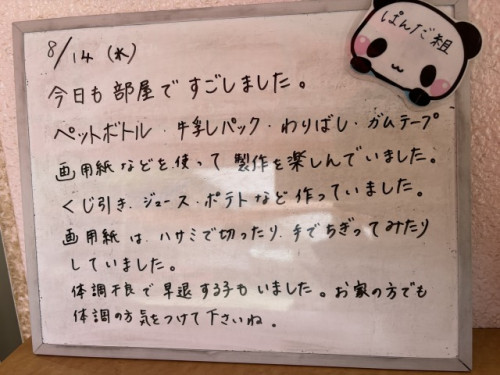 ぱんだ組
8/14 (水)
今日も部屋ですごしました。
ペットボトル・牛乳パック・わりばし・ガムテープ
画用紙などを使って製作を楽しんでいました。
くじ引き、ジュース・ポテトなど作っていました。
画用紙は、ハサミで切ったり、手でちぎってみたり
していました。
体調不良で早退する子もいました。お家の方でも
体調の方気をつけて下さいね。